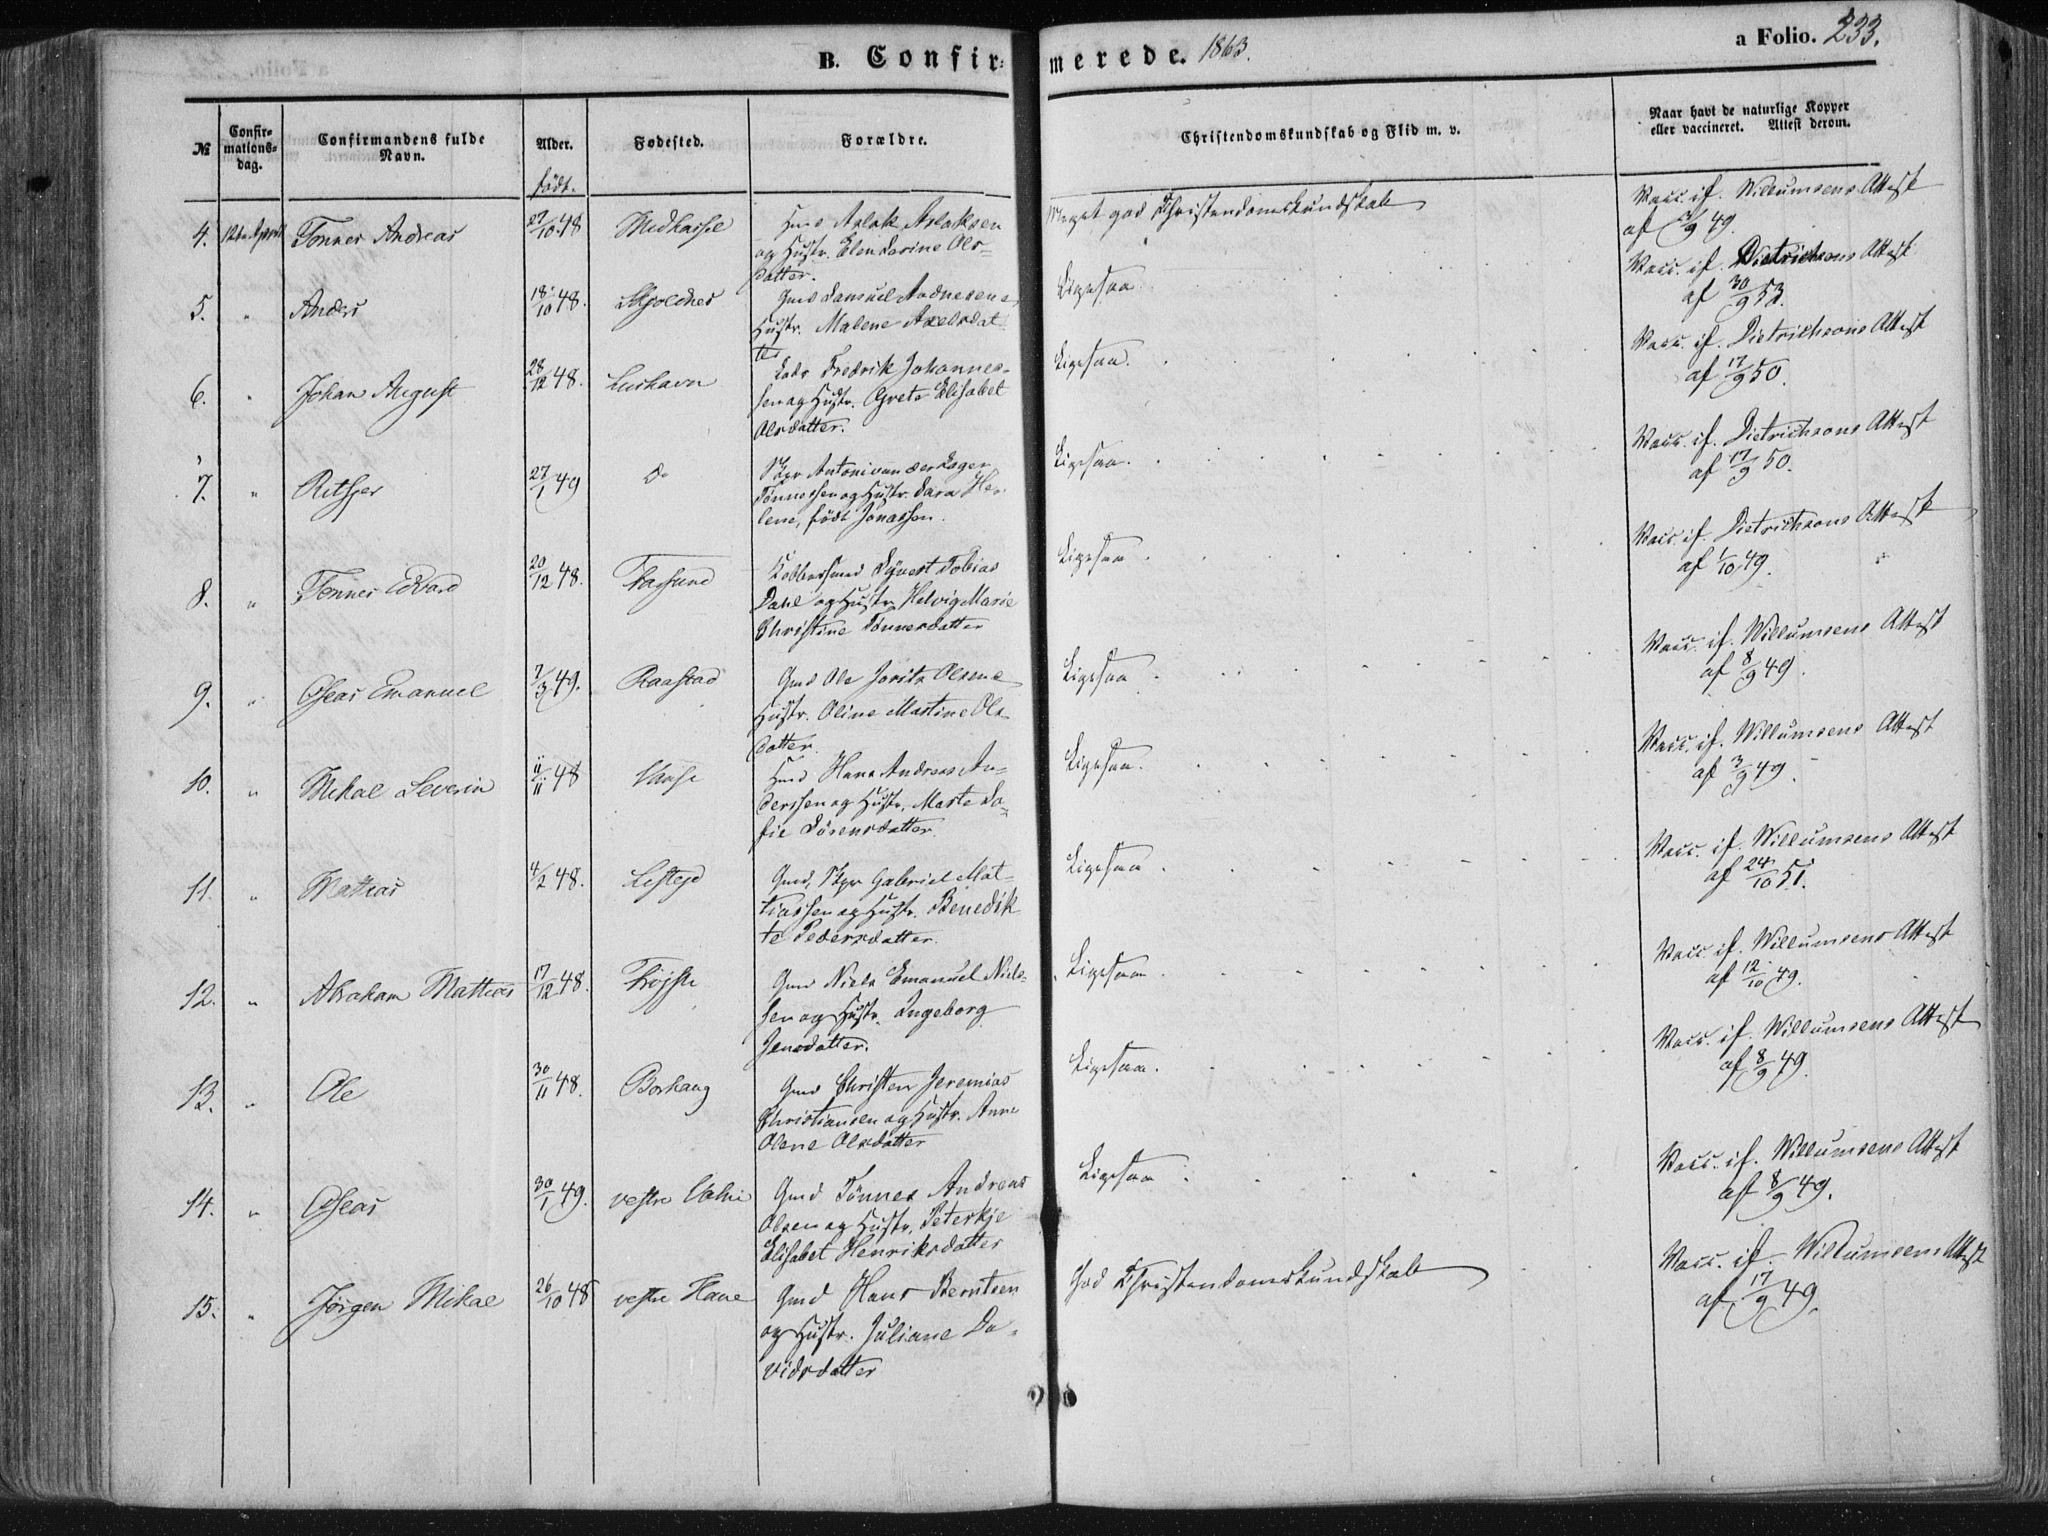 B. Confirmerede. 1863.
a Folio. 233.
№
Confirmationsdag.
Confirmandens fulde Navn.
Alder.
födt.
Fødested.
Forældre.
Christendomskundskab og Flid m. v.
Naar havt de naturlige Kopper
eller vaccineret. Attest derom.
4. 12te April Tönnes Andreas 27/10 48 Midhassel
Aslak Aslaksen
og Hustr. Elen Serine Ols-
datter.
Meget god Christendomskundskab
Vacc. if. Willumsens Attest
af 49.
5. " Anders 18/10 48.
Gmd Samuel Andnesen
Hustr. Malene Axelsdat-
ter
Ligesaa
Vacc. if. Dietrichsons Attest
af 30/9 53.
6. " Johan August 28/12 48. Lushavn
Lods Fredrik Johannes-
sen og Hustr. Grete Elisabet
Olsdatter.
Ligesaa.
Vacc. if. Dietrichsons Attest
af 17/9 50.
7. " Ritsjer 27/1 49 do
Skpr Antoni van der Lager
Tönnessen og Hustr. Sara He-
lene, födt Jonassen.
Ligesaa.
Vacc. if. Dietrichsons Attest
af 17/9 50.
8. " Tönnes Edvard 20/12 48. Farsund
Kobbersmed Syvert Tobias
Dahl og Hustr. Helvig Marie
Christine Tönnesdatter
Ligesaa
Vacc. if. Dietrichsons Attest
af 1/10 49.
9. " Oseas Emanuel 7/3 49. Raastad
Gmd Ole Joritz Olsen
Hustr. Oline Martine Ols-
datter.
Ligesaa
Vacc. if. Willumsens Attest
af 8/9 49.
10. " Mikal Severin 11/11 48 Vanse
Hmd Hans Andreas An-
derssen og Hustr. Marte So-
fie Sörensdatter.
Ligesaa.
Vacc. if. Willumsens Attest
af 3/9 49.
11. " Mathias 4/2 48. Listeid
Gmd, Skpr Gabriel Mat-
tiassen og Hustr. Benedik-
te Pedersdatter.
Ligesaa
Vacc. if. Willumsens Attest
af 24/10 51.
12. " Abraham Mattias 17/12 48.
Gmd Niels Emanuel Niels-
sen og Hustr. Ingeborg
Jensdatter.
Ligesaa
Vacc. if. Willumsens Attest
af 12/10 49.
13. " Ole 30/11 48. Borhaug
Gmd Christen Jeremias
Christiansen og Hustr. Anne
Olene Olsdatter
Ligesaa.
Vacc. if. Willumsens Attest
af 8/9 49.
14. " Oseas 30/1 49. vestre Vatne
Gmd Tönnes Andreas
Olsen og Hustr. Peterkje
Elisabet Henriksdatter
Ligesaa
Vacc. if. Willumsens Attest
af 8/9 49.
15. " Jörgen Mikal 26/10 48 vestre Hauge
Gmd Hans Berntsen
og Hustr. Juliane Da-
vidsdatter
God Christendomskundskab
Vacc. if. Willumsens Attest
af 17/9 49.